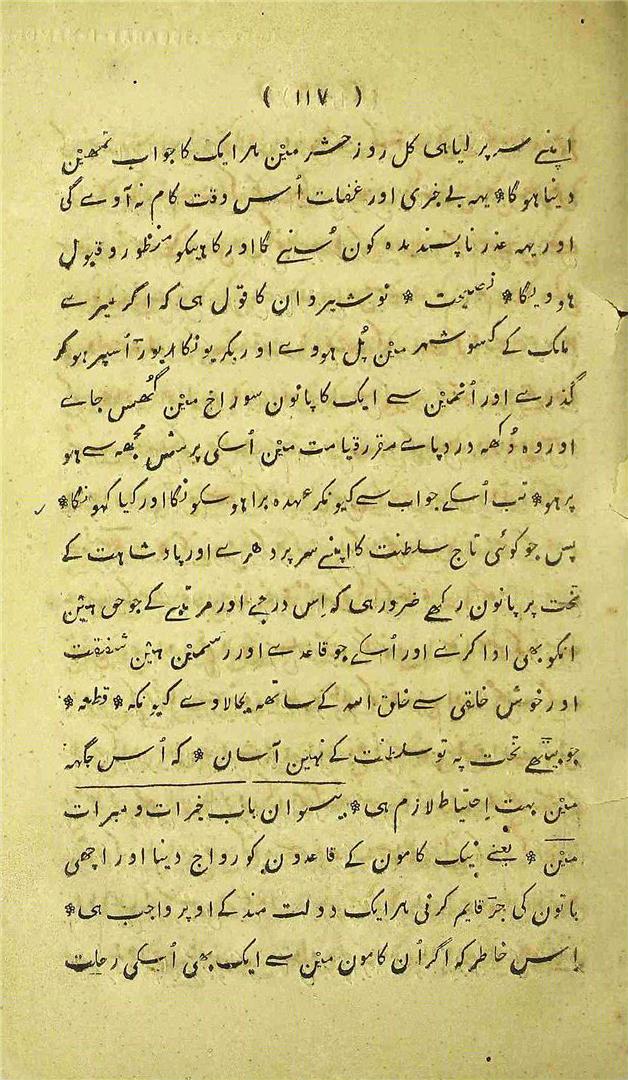 ( ١١٧ )
اپنے سر پر لیا ہی کل روز حشر میں ہر ایک کا جواب تمھیں
دینا ہوگا * یہہ بے خبری اور غفلت اُس وقت کام نہ آوے گی
اور یہہ عذر ناپسندیدہ کون سُنے گا اور کاہیکو منظور و قبول
ہوویگا * نصیحت * نوشیروان کا قول ہی کہ اگر میرے
ملک کے کسو شہر میں پُل ہووے اور بکریونکا ریوڑ اُسپر ہوکر
گذرے اور اُنمیں سے ایک کا پانوں سوراخ میں گھُس جاے
اور وہ دُکھہ درد پاے مقرر قیامت میں اُسکی پرسش مجھہ سے ہو
پر ہو * تب اُسکے جواب سے کیونکر عہدہ برا ہو سکونگا اور کیا کہونگا *
پس جو کوئی تاج سلطنت کا اپنے سر پر دھرے اور پادشاہت کے
تخت پر پانوں رکھے ضرور ہی کہ اِس درجے اور مرتبے کے جو حق ہیں
انکو بھی ادا کرے اور اُسکے جو قاعدے اور رسمیں ہیں شفقت
اور خوش خلقی سے خلق اللہ کے ساتھہ بجالاوے کیونکہ * قطعہ *
جو بیٹھے تخت پہ تو سلطنت کے نہیں آسان * کہ اُس جگہہ
میں بہت اِحتیاط لازم ہی * بیسواں باب خیرات و مبرات
میں * یعنے نیک کاموں کے قاعدوں کو رواج دینا اور اچھی
باتوں کی جڑ قایم کرنی ہر ایک دولت مند کے اوپر واجب ہی *
اِس خاطر کہ اگر اُن کاموں میں سے ایک بھی اُسکی رحلت